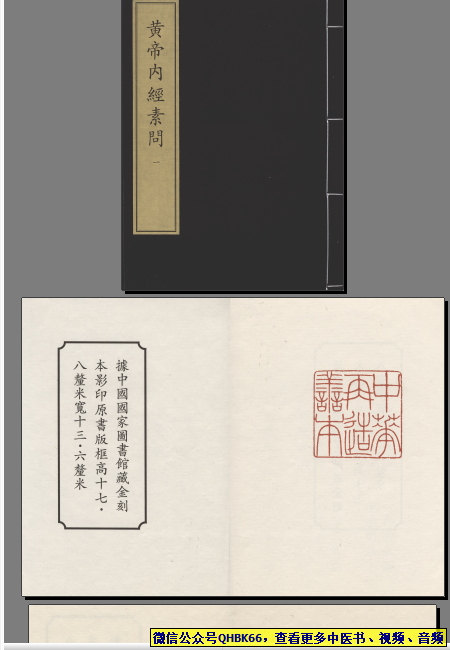 黃帝內經素問
一
據中國國家圖書館藏金刻
本影印原書版框高十七·
八釐米寬十三·六釐米
中華再造善本
微信公众号QHBK66，查看更多中医书、视频、音频